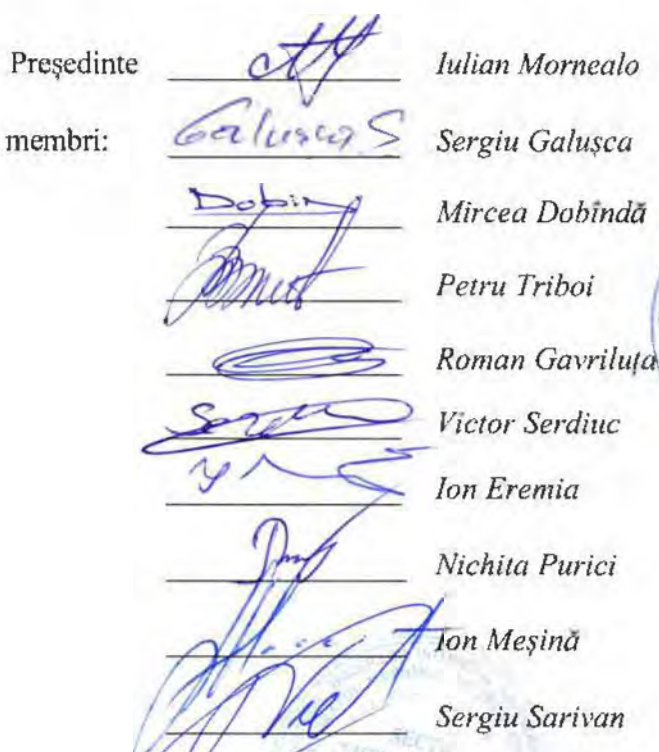 Președinte Iulian Mornealo
membri: Galușca S Sergiu Galușca
Dobin Mircea Dobîndă
Petru Triboi
Roman Gavriluța
Victor Serdiuc
Ion Eremia
Nichita Purici
Ion Meșină
Sergiu Sarivan